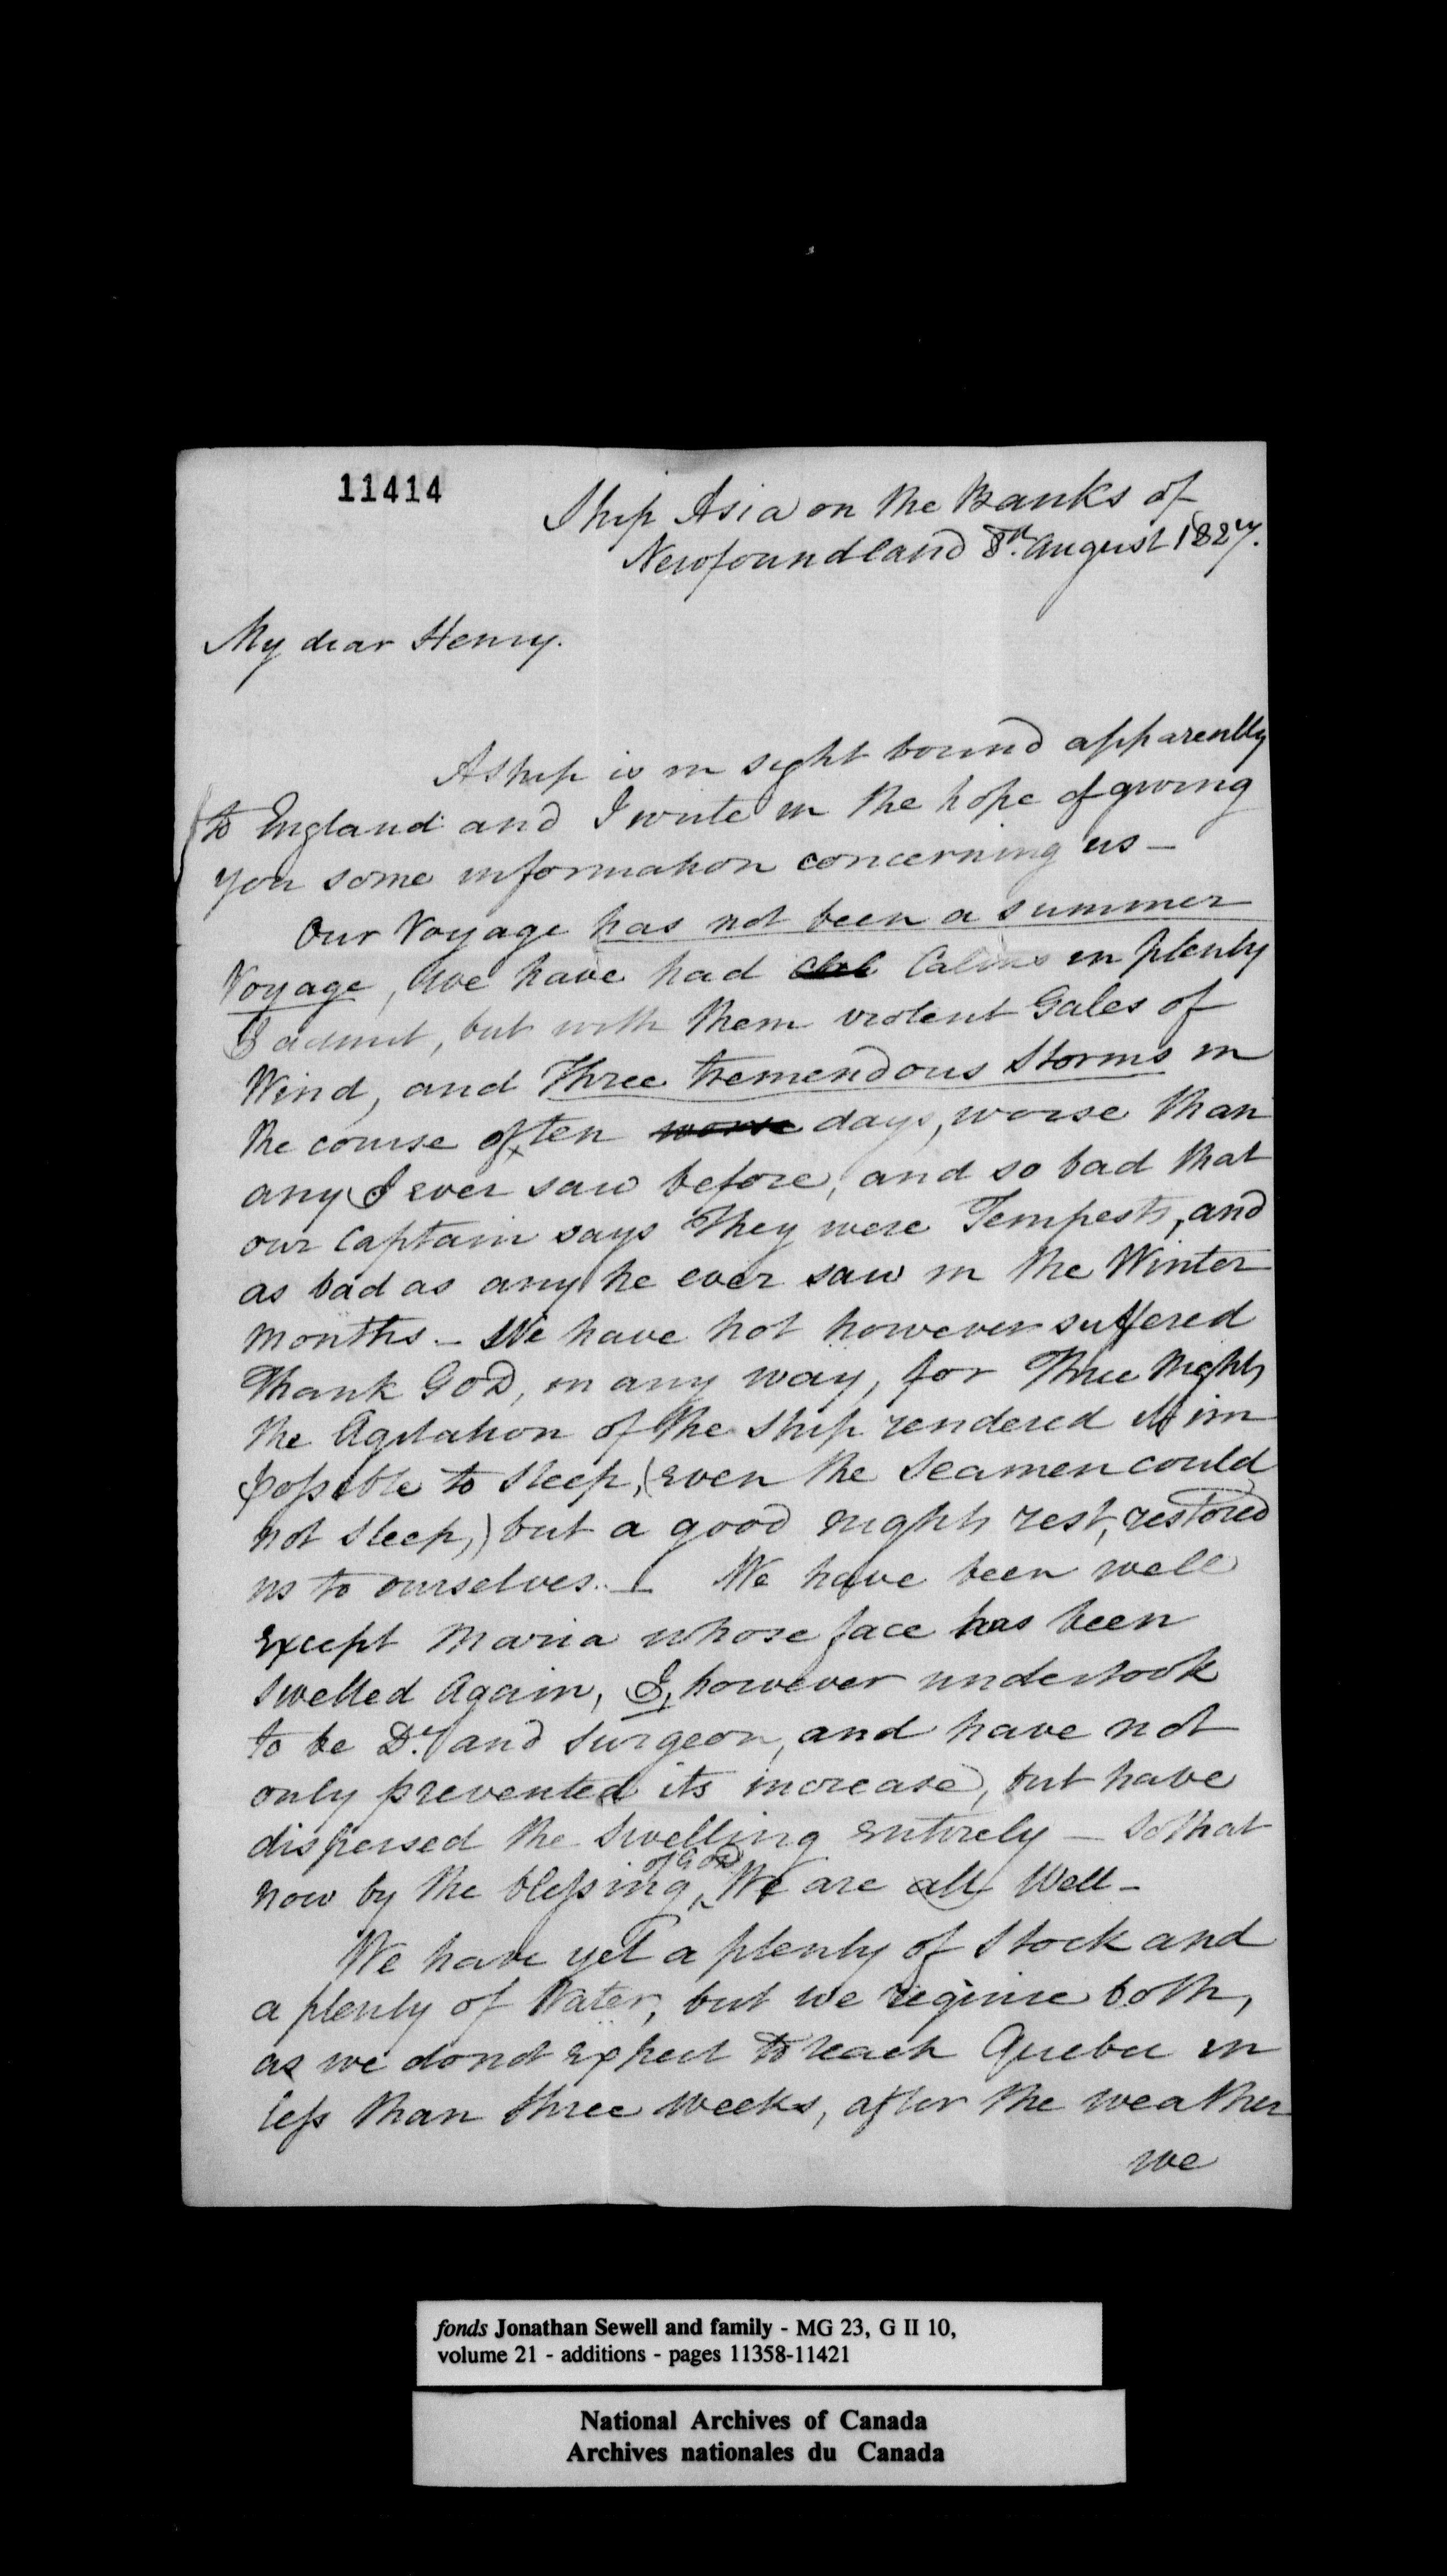 11414
Ship Asia on the Banks of
Newfoundland 8th. August 1827.
My dear Henry.
A ship is in sight bound apparently
to England and I write in the hope of giving
you some information concerning us —
Our Voyage has not been a summer
Voyage, We have had Calms in plenty
I admit, but with them violent Gales of
Wind, and Three tremendous Storms in
the course of ten worse days, worse than
any I ever saw before, and so bad that
our Captain says They were Tempests, and
as bad as any he ever saw in the Winter
months — We have not however suffered
Thank GOD, in any way, for Three Nights
the Agitation of the Ship rendered it im
possible to Sleep, (even the Seamen could
not Sleep,) but a good nights rest, restored
us to ourselves. — We have been well
except Maria whose face has been
swelled Again, I, however undertook
to be Dr. and Surgeon, and have not
only prevented its increase, but have
dispersed the Swelling entirely — So that
now by the blessing of GOD We are all Well —
We have yet a plenty of Stock and
a plenty of Water, but we require both,
as we do not expect to reach Quebec in
less than three weeks, after the weather
we
fonds Jonathan Sewell and family - MG 23, G II 10,
volume 21 - additions - pages 11358-11421
National Archives of Canada
Archives nationales du Canada